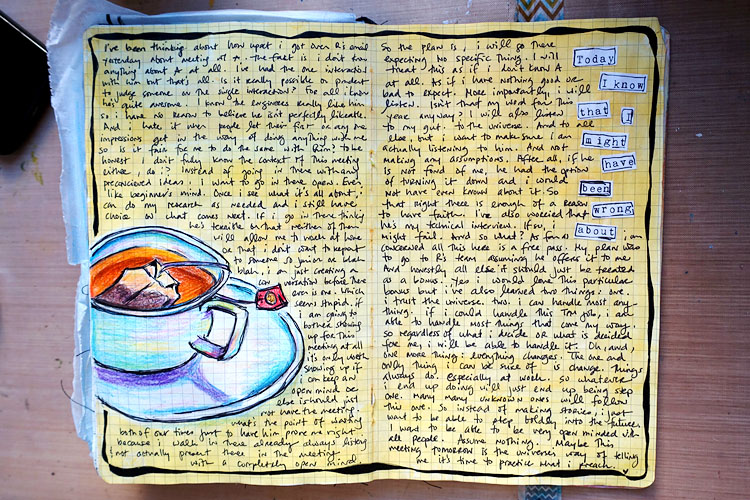 I've been thinking about how upset i got over R's email
yesterday about meeting w/ A. The fact is i don't know
anything about A at all. I've had the one interaction
with him but that's all. Is it really possible or prudent
to judge someone on the single interaction? For all i know
he's quite awesome. I know the engineers really like him
so i have no reason to believe he isn't perfectly likeable.
And i hate it when people let their first or any one
impressions get in the way of doing anything with me
so is it fair for me to do the same with him? To be
honest, i don't fully know the context of this meeting
either, do i? Instead of going in there with any
preconceived ideas, i want to go in there open. Even
like beginner's mind. Once i see what it's all about, i
can do my research as needed and i still have
choice on what comes next. If i go in there thinking
he's terrible or that neither of them
will allow me to work at home
or that i don't want to report
to someone so junior or blah
blah, i am just creating a
conversation before there
even is one. Which
seems stupid. if
i am going to
bother showing
up for this
meeting at all
it's only worth
showing up if
i can keep an
open mind. or
else i should just
not have the meeting.
what's the point of wasting
both of our times just to have him prove me right
because i walk in there already always listening
& not actually present there in the meeting
with a completely open mind.
So the plan is, i will go there
expecting no specific thing. I will
treat this as if i don't know A
at all. As if i have nothing good or
bad to expect. More importantly, i will
listen. Isn't that my word for this
year anyway? I will also listen
to my gut. To the universe. And to all
else, but i want to make sure i am
actually listening to him. And not
making any assumptions. After all, if he
is not fond of me, he had the option
of turning it down and i would
not have even known about it. So
that right there is enough of a reason
to have faith. I've also worried that
he's my technical interview. If so, i
might fail. And so what? As far as i am
concerned all this here is a free pass. My plan was
to go to R's team assuming he offers it to me
And honestly all else it should just be treated
as a bonus. Yes i would love this particular
bonus but i've also learned two things: one.
i trust the universe. two. i can handle most any
thing. if i could handle this TM job, i am
able to handle most things that come my way.
so regardless of what i decide or what is decided
for me, i will be able to handle it. Oh, and,
one more thing: everything changes. The one and
only thing i can be sure of is change. Things
always do. Especially at work. So whatever
i end up doing will just end up being step
one. Many many unknown ones will follow
this one. So instead of making stories, i just
want to be able to step boldly into the future
I want to be able to be very open minded with
all people. Assume nothing. Maybe this
meeting tomorrow is the universe's way of telling
me it's time to practice what i preach.
Today
I know
that I
might
have
been
wrong
about